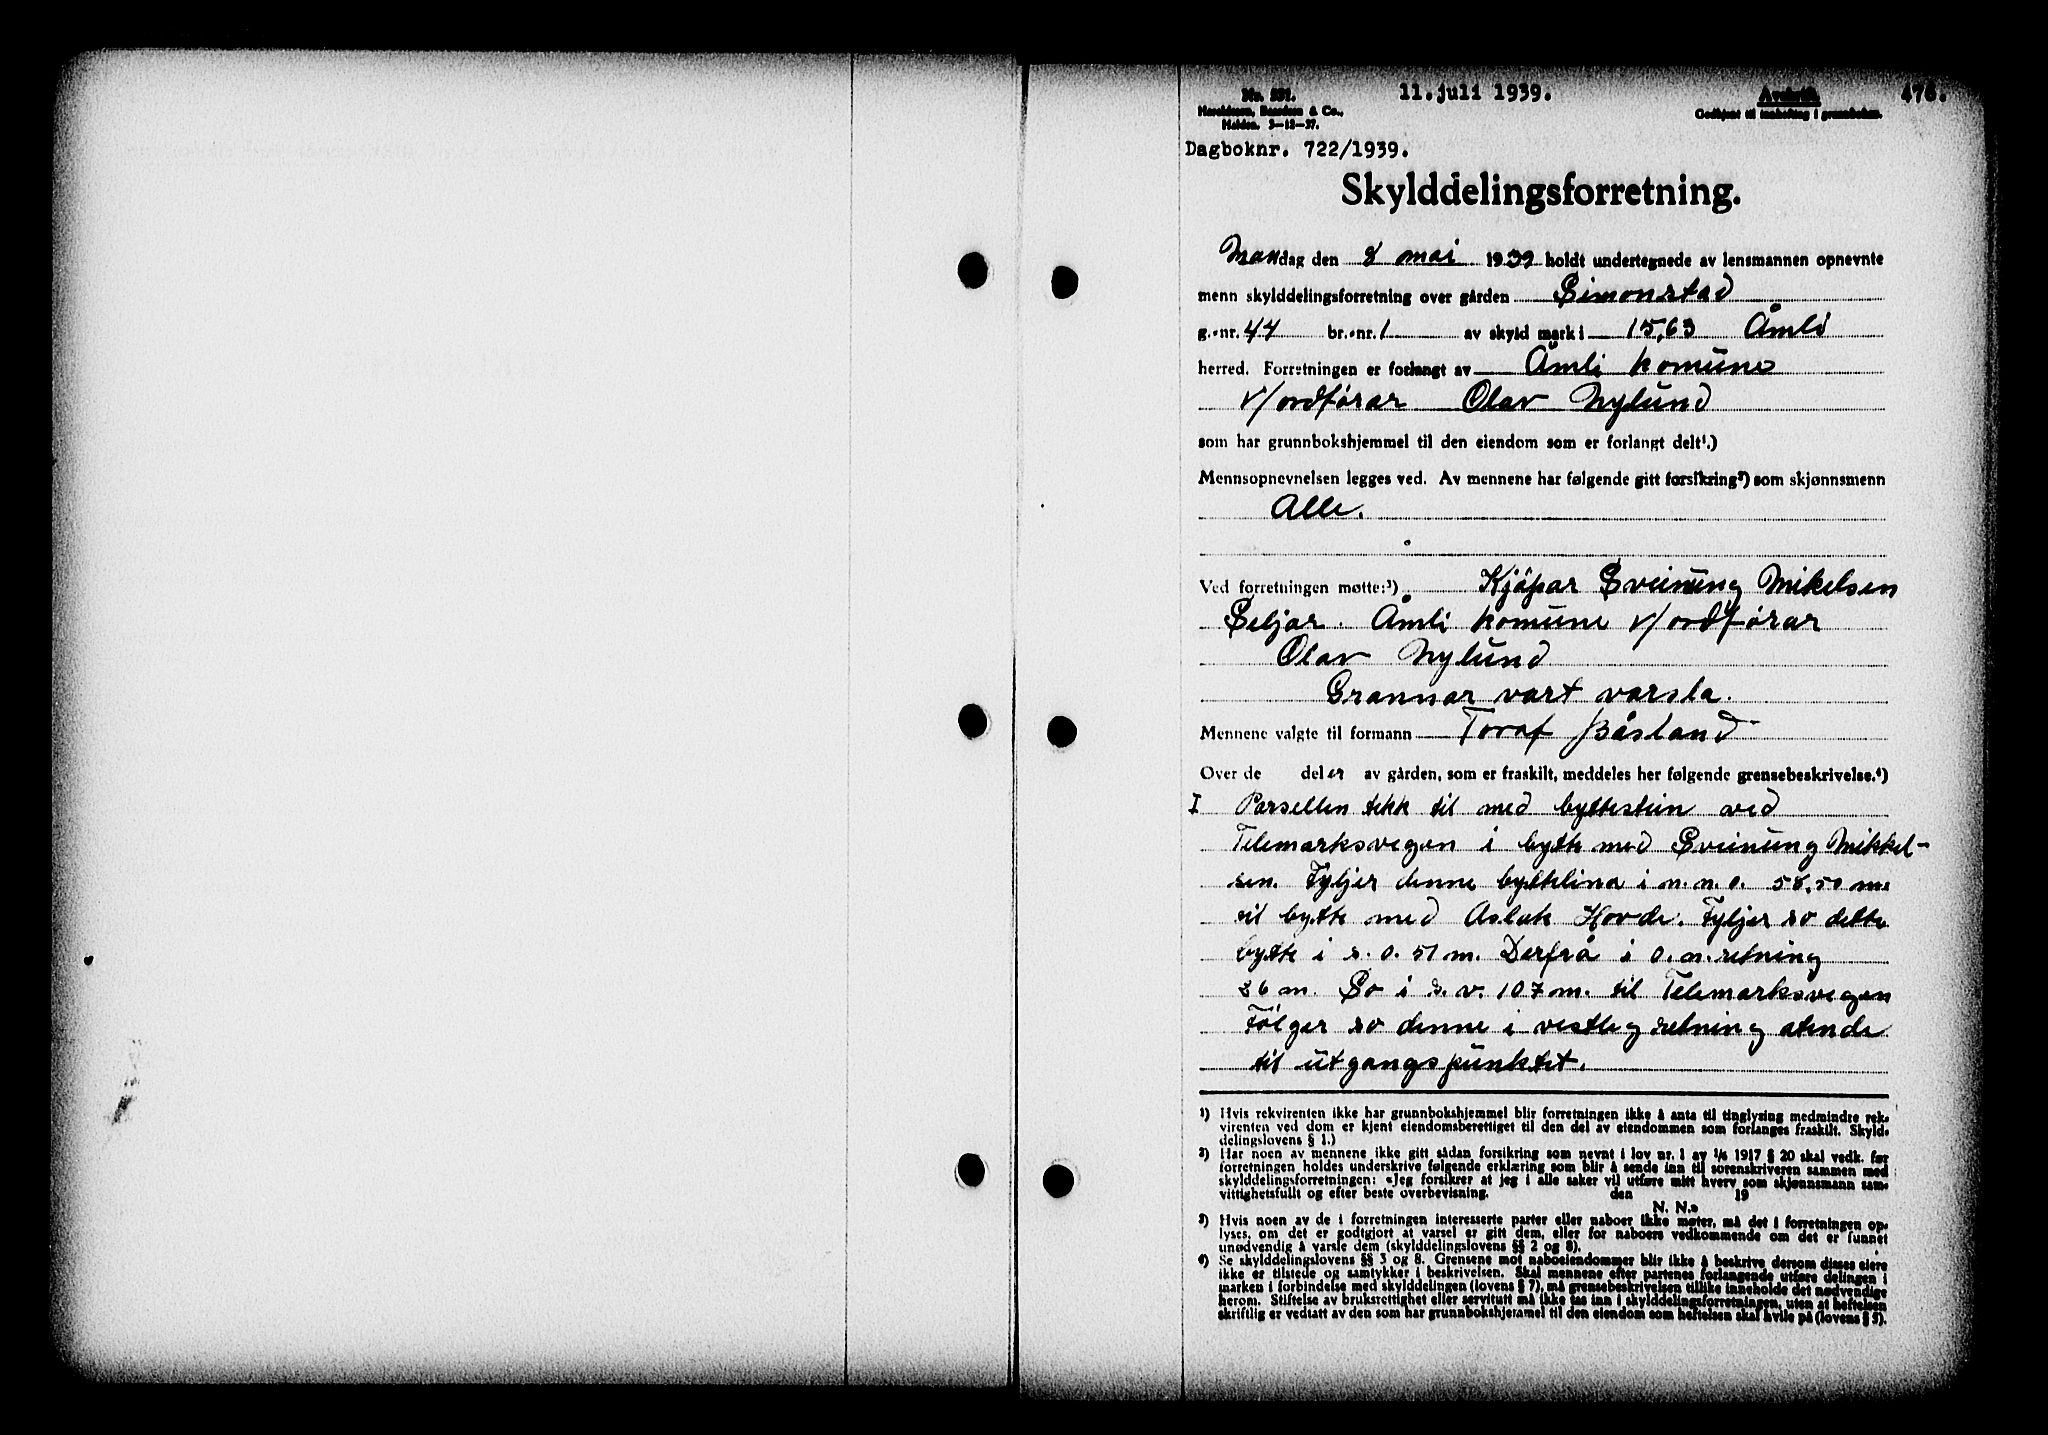 No. 551.
11. juli 1939.
Avskrift.
478.
Haraldsen, Bensdsen & Co.,
Halden. 3-12-37.
Godkjent til innhefting i grunnboken.
Dagboknr. 722/1939.
Skylddelingsforretning.
Mandag den 8 mai 1939 holdt undertegnede av lensmannen opnevnte
menn skylddelingsforretning over gården Simonstad
g.-nr. 44 br.-nr. 1 av skyld mark i 15,63 Åmli
herred. Forretningen er forlangt av Åmli komune
v/ordførar Olav Nylund
som har grunnbokshjemmel til den eiendom som er forlangt delt¹.)
Mennsopnevnelsen legges ved. Av mennene har følgende gitt forsikring²) som skjønnsmenn
Alle.
Ved forretningen møtte:³) Kjøpar Sveinung Mikelsen
Seljar. Åmli komune v/ordførar
Olav Nylund
Grannar vart varsla.
Mennene valgte til formann Toraf Båsland
Over de deler av gården, som er fraskilt, meddeles her følgende grensebeskrivelse.⁴)
I Parsellen tekk til med byttestein ved
Telemarksvegen i bytte med Sveinung Mikkel-
sen. Fyljer denne byttelina i n. n. o. 58,50 m.
til bytte med Aslak Hovde. Fyljer so dette
bytte i s. o. 51 m. Derfrå i o. n. retning
36 m. So i s. v. 107 m. til Telemarksvegen
Følger so denne i vestleg retning atende
til utgangspunktet.
¹) Hvis rekvirenten ikke har grunnbokshjemmel blir forretningen ikke å anta til tinglysing medmindre rek-
virenten ved dom er kjent eiendomsberettiget til den del av eiendommen som forlanges fraskilt. Skyld-
delingslovens § 1.)
²) Har noen av mennene ikke gitt sådan forsikring som nevnt i lov nr. 1 av 1/6 1917 § 20 skal vedk. før
forretningen holdes underskrive følgende erklæring som blir å sende inn til sorenskriveren sammen med
skylddelingsforretningen: «Jeg forsikrer at jeg i alle saker vil utføre mitt hverv som skjønnsmann sam-
vittighetsfullt og efter beste overbevisning. den 19
N. N.»
³) Hvis noen av de i forretningen interesserte parter eller naboer ikke møter, må det i forretningen op-
lyses, om det er godtgjort at varsel er gitt dem, eller for naboers vedkommende om det er funnet
unødvendig å varsle dem (skylddelingslovens §§ 2 og 8).
⁴) Se skylddelingslovens §§ 3 og 8. Grensene mot naboeiendommer blir ikke å beskrive dersom disses eiere
ikke er tilstede og samtykker i beskrivelsen. Skal mennene efter partenes forlangende utføre delingen i
marken i forbindelse med skylddelingen (lovens § 7), må grensebeskrivelsen tillike inneholde det nødvendige
herom. Stiftelse av bruksrettighet eller servitutt må ikke tas inn i skylddelingsforretningen, uten at heftelsen
skriftlig er vedtatt av den som har grunnbokshjemmel til den eiendom som heftelsen skal hvile på (lovens § 9).